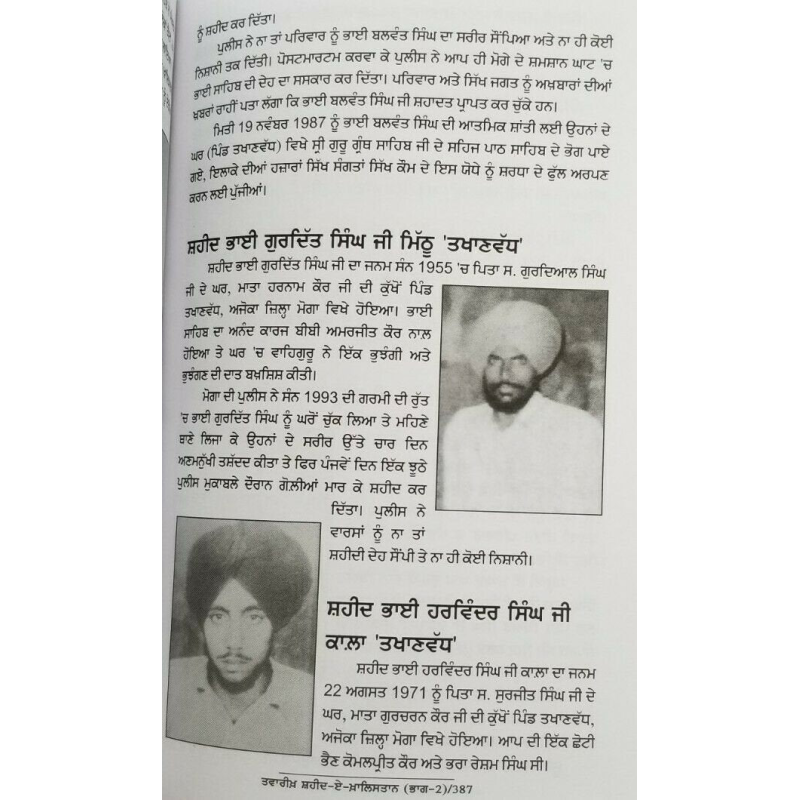 ਨੂੰ ਸ਼ਹੀਦ ਕਰ ਦਿੱਤਾ।
ਪੁਲੀਸ ਨੇ ਨਾ ਤਾਂ ਪਰਿਵਾਰ ਨੂੰ ਭਾਈ ਬਲਵੰਤ ਸਿੰਘ ਦਾ ਸਰੀਰ ਸੌਂਪਿਆ ਅਤੇ ਨਾ ਹੀ ਕੋਈ
ਨਿਸ਼ਾਨੀ ਤਕ ਦਿੱਤੀ। ਪੋਸਟਮਾਰਟਮ ਕਰਵਾ ਕੇ ਪੁਲੀਸ ਨੇ ਆਪ ਹੀ ਮੋਗੇ ਦੇ ਸ਼ਮਸ਼ਾਨ ਘਾਟ 'ਚ
ਭਾਈ ਸਾਹਿਬ ਦੀ ਦੇਹ ਦਾ ਸਸਕਾਰ ਕਰ ਦਿੱਤਾ। ਪਰਿਵਾਰ ਅਤੇ ਸਿੱਖ ਜਗਤ ਨੂੰ ਅਖ਼ਬਾਰਾਂ ਦੀਆਂ
ਖ਼ਬਰਾਂ ਰਾਹੀਂ ਪਤਾ ਲੱਗਾ ਕਿ ਭਾਈ ਬਲਵੰਤ ਸਿੰਘ ਜੀ ਸ਼ਹਾਦਤ ਪ੍ਰਾਪਤ ਕਰ ਚੁੱਕੇ ਹਨ।
ਮਿਤੀ 19 ਨਵੰਬਰ 1987 ਨੂੰ ਭਾਈ ਬਲਵੰਤ ਸਿੰਘ ਦੀ ਆਤਮਿਕ ਸ਼ਾਂਤੀ ਲਈ ਉਹਨਾਂ ਦੇ
ਘਰ (ਪਿੰਡ ਤਖਾਣਵੱਧ) ਵਿਖੇ ਸ੍ਰੀ ਗੁਰੂ ਗ੍ਰੰਥ ਸਾਹਿਬ ਜੀ ਦੇ ਸਹਿਜ ਪਾਠ ਸਾਹਿਬ ਦੇ ਭੋਗ ਪਾਏ
ਗਏ, ਇਲਾਕੇ ਦੀਆਂ ਹਜ਼ਾਰਾਂ ਸਿੱਖ ਸੰਗਤਾਂ ਸਿੱਖ ਕੌਮ ਦੇ ਇਸ ਯੋਧੇ ਨੂੰ ਸ਼ਰਧਾ ਦੇ ਫੁੱਲ ਅਰਪਣ
ਕਰਨ ਲਈ ਪੁੱਜੀਆਂ।
ਸ਼ਹੀਦ ਭਾਈ ਗੁਰਦਿੱਤ ਸਿੰਘ ਜੀ ਮਿੱਠੂ 'ਤਖਾਣਵੱਧ'
ਸ਼ਹੀਦ ਭਾਈ ਗੁਰਦਿੱਤ ਸਿੰਘ ਜੀ ਦਾ ਜਨਮ ਸੰਨ 1955 'ਚ ਪਿਤਾ ਸ. ਗੁਰਦਿਆਲ ਸਿੰਘ
ਜੀ ਦੇ ਘਰ, ਮਾਤਾ ਹਰਨਾਮ ਕੌਰ ਜੀ ਦੀ ਕੁੱਖੋਂ ਪਿੰਡ
ਤਖਾਣਵੱਧ, ਅਜੋਕਾ ਜ਼ਿਲ੍ਹਾ ਮੋਗਾ ਵਿਖੇ ਹੋਇਆ। ਭਾਈ
ਸਾਹਿਬ ਦਾ ਅਨੰਦ ਕਾਰਜ ਬੀਬੀ ਅਮਰਜੀਤ ਕੌਰ ਨਾਲ਼
ਹੋਇਆ ਤੇ ਘਰ 'ਚ ਵਾਹਿਗੁਰੂ ਨੇ ਇੱਕ ਭੁਝੰਗੀ ਅਤੇ
ਭੁਝੰਗਣ ਦੀ ਦਾਤ ਬਖ਼ਸ਼ਿਸ਼ ਕੀਤੀ।
ਮੋਗਾ ਦੀ ਪੁਲੀਸ ਨੇ ਸੰਨ 1993 ਦੀ ਗਰਮੀ ਦੀ ਰੁੱਤ
'ਚ ਭਾਈ ਗੁਰਦਿੱਤ ਸਿੰਘ ਨੂੰ ਘਰੋਂ ਚੁੱਕ ਲਿਆ ਤੇ ਮਹਿਣੇ
ਥਾਣੇ ਲਿਜਾ ਕੇ ਉਹਨਾਂ ਦੇ ਸਰੀਰ ਉੱਤੇ ਚਾਰ ਦਿਨ
ਅਣਮਨੁੱਖੀ ਤਸ਼ੱਦਦ ਕੀਤਾ ਤੇ ਫਿਰ ਪੰਜਵੇਂ ਦਿਨ ਇੱਕ ਝੂਠੇ
ਪੁਲੀਸ ਮੁਕਾਬਲੇ ਦੌਰਾਨ ਗੋਲ਼ੀਆਂ ਮਾਰ ਕੇ ਸ਼ਹੀਦ ਕਰ
ਦਿੱਤਾ। ਪੁਲੀਸ ਨੇ
ਵਾਰਸਾਂ ਨੂੰ ਨਾ ਤਾਂ
ਸ਼ਹੀਦੀ ਦੇਹ ਸੌਂਪੀ ਤੇ ਨਾ ਹੀ ਕੋਈ ਨਿਸ਼ਾਨੀ।
ਸ਼ਹੀਦ ਭਾਈ ਹਰਵਿੰਦਰ ਸਿੰਘ ਜੀ
ਕਾਲ਼ਾ 'ਤਖਾਣਵੱਧ'
ਸ਼ਹੀਦ ਭਾਈ ਹਰਵਿੰਦਰ ਸਿੰਘ ਜੀ ਕਾਲ਼ਾ ਦਾ ਜਨਮ
22 ਅਗਸਤ 1971 ਨੂੰ ਪਿਤਾ ਸ. ਸੁਰਜੀਤ ਸਿੰਘ ਜੀ ਦੇ
ਘਰ, ਮਾਤਾ ਗੁਰਚਰਨ ਕੌਰ ਜੀ ਦੀ ਕੁੱਖੋਂ ਪਿੰਡ ਤਖਾਣਵੱਧ,
ਅਜੋਕਾ ਜ਼ਿਲ੍ਹਾ ਮੋਗਾ ਵਿਖੇ ਹੋਇਆ। ਆਪ ਦੀ ਇੱਕ ਛੋਟੀ
ਭੈਣ ਕੋਮਲਪ੍ਰੀਤ ਕੌਰ ਅਤੇ ਭਰਾ ਰੇਸ਼ਮ ਸਿੰਘ ਸੀ।
ਤਵਾਰੀਖ਼ ਸ਼ਹੀਦ-ਏ-ਖ਼ਾਲਿਸਤਾਨ (ਭਾਗ-2)/387